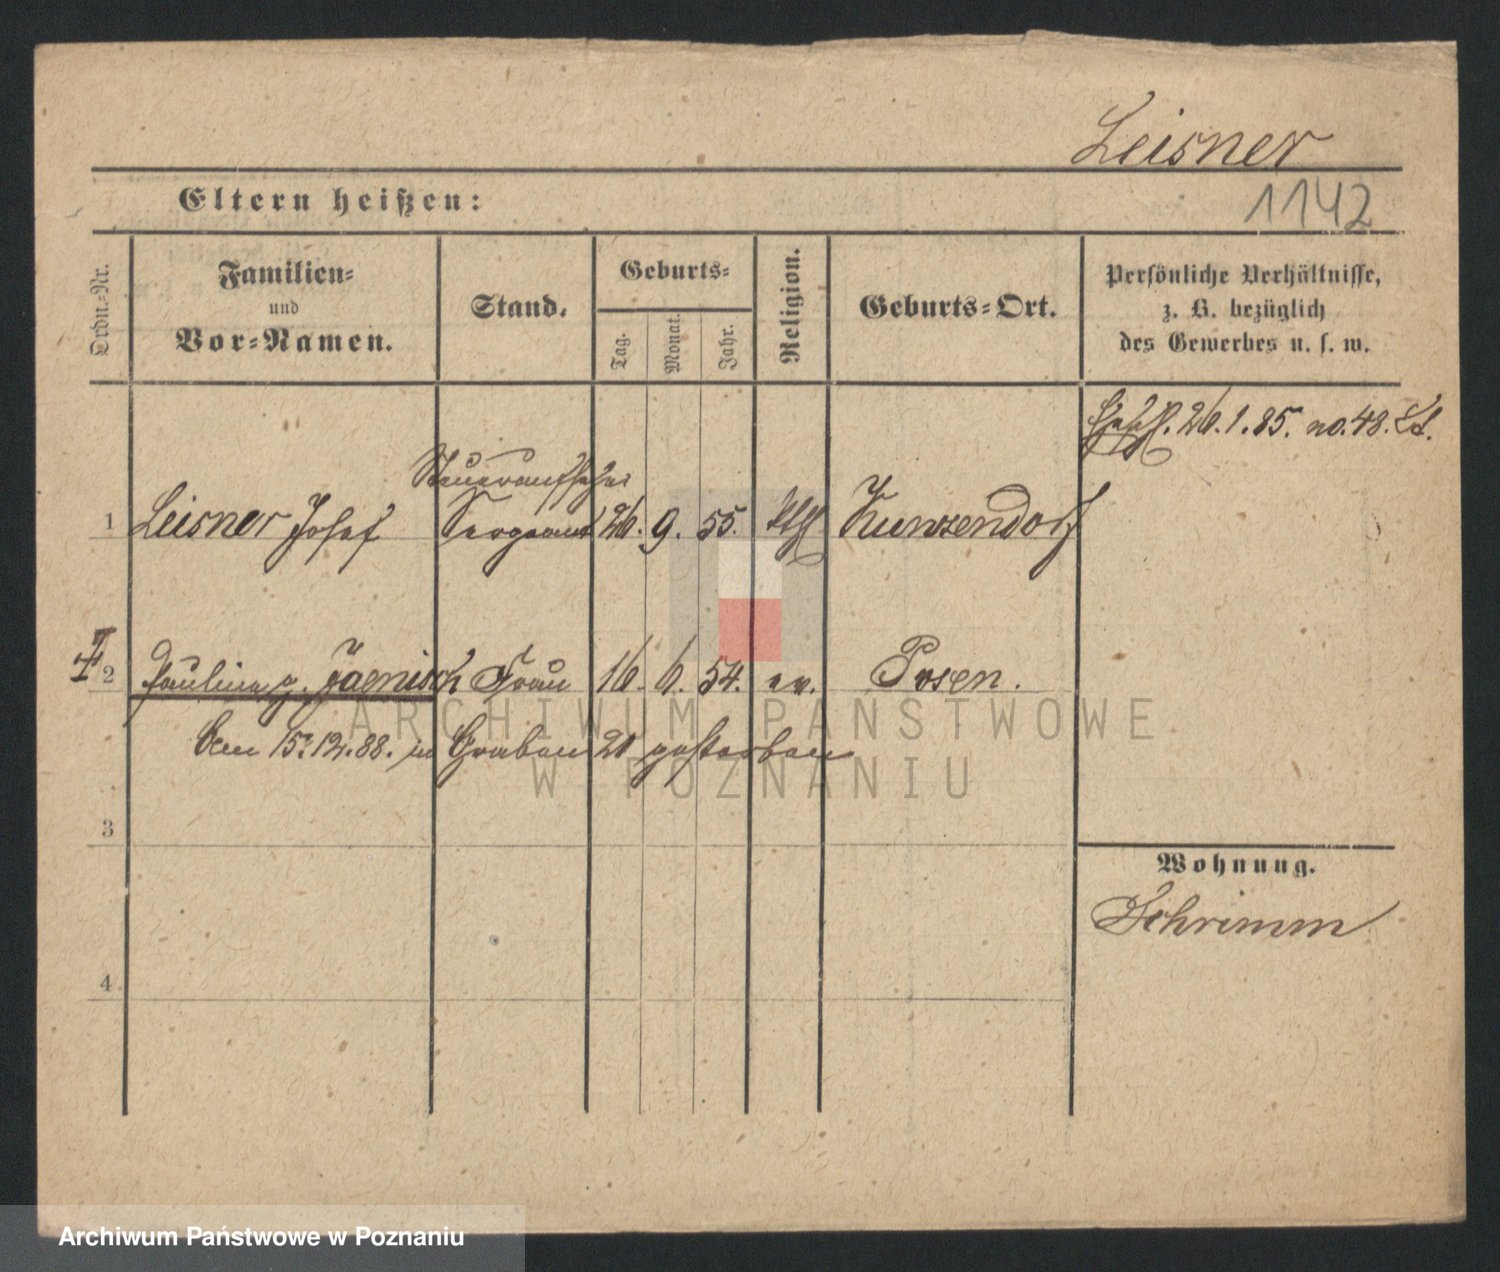 Leisner
Eltern heißen:
1142
Ordn.-Nr.
Familien-
und
Vor-Namen.
Stand.
Geburts-
Tag.
Monat.
Jahr.
Religion.
Geburts-Ort.
Persönliche Verhältnisse,
z. B. bezüglich
des Gewerbes u. s. w.
26. 1. 85. no. 48.
Steueraufseher
1 Leisner Josef Sergeant 26. 9. 55. kth Kunzendorf
2 Pauline g. Jaenisch Frau 16. 6. 54. ev. Posen.
Am 15. 12. 88. in Graben 20 gestorben
3
Wohnung.
Schrimm
4
ARCHIWUM PAŃSTWOWE
W POZNANIU
Archiwum Państwowe w Poznaniu